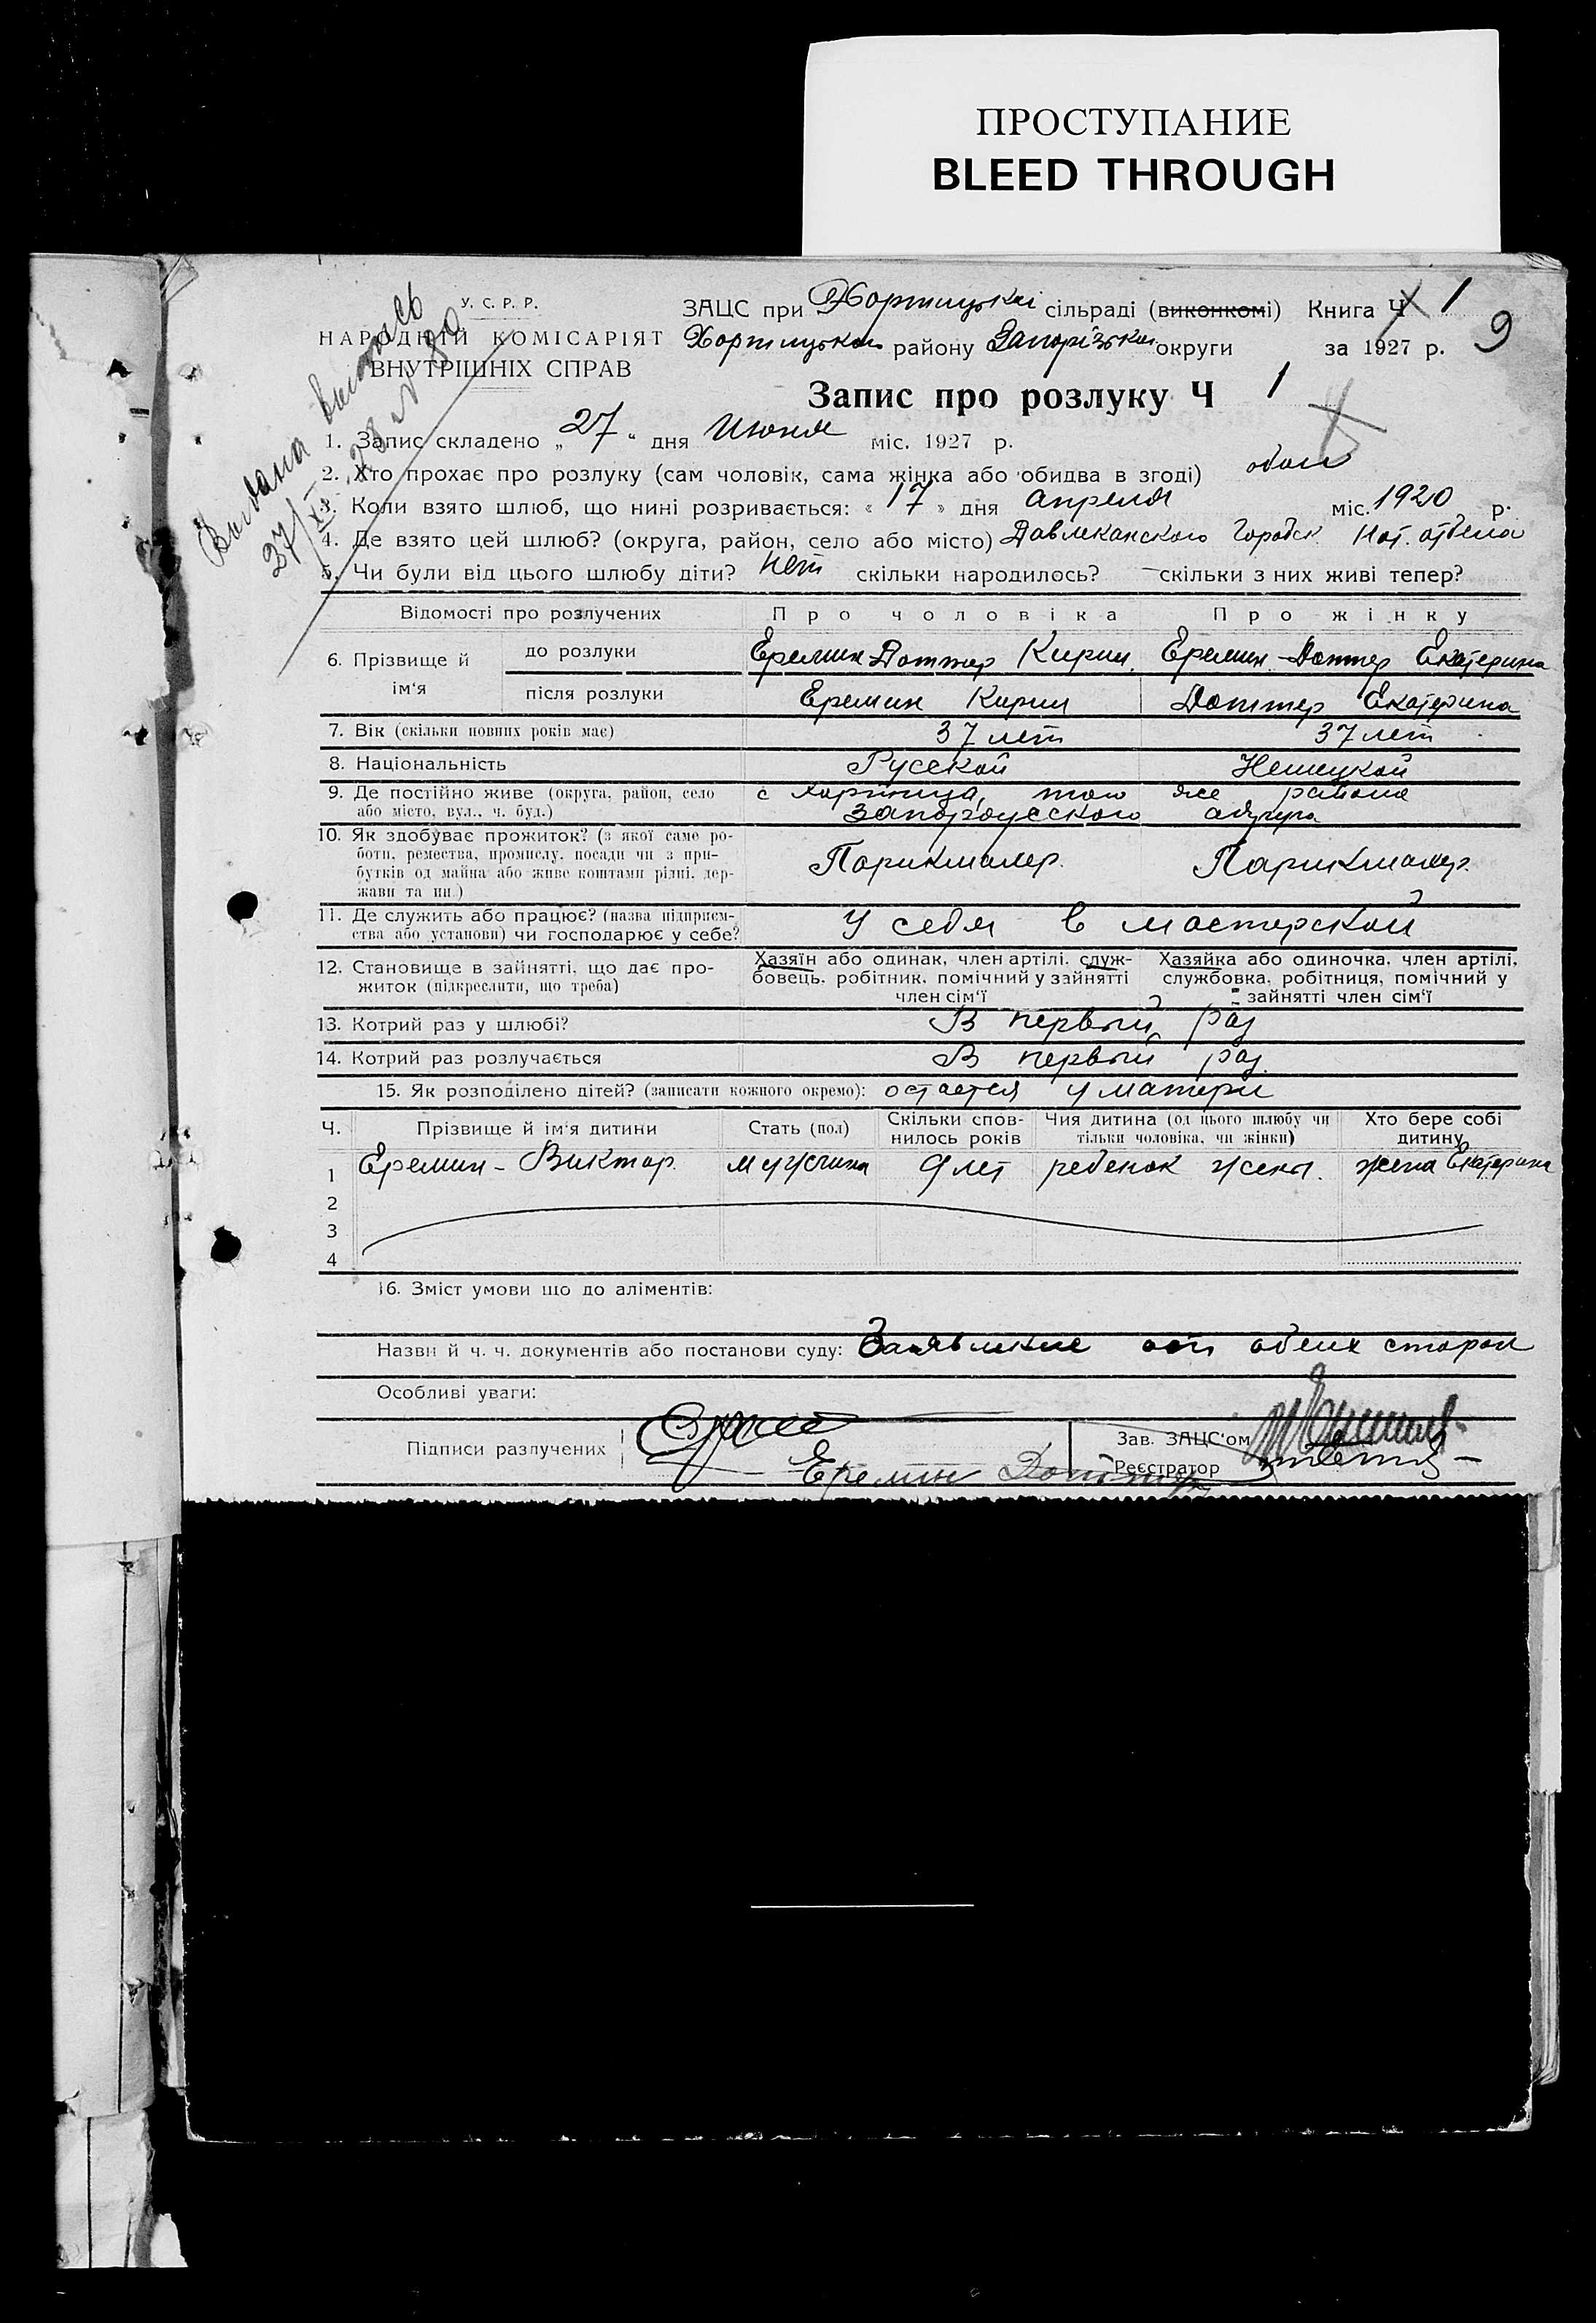 ПРОСТУПАНИЕ
BLEED THROUGH
У. С. Р. Р.
НАРОДНІЙ КОМІСАРІЯТ
ВНУТРІШНІХ СПРАВ
ЗАЦС при Хортицькій сільраді (виконкомі) Книга Ч 1
Хортицького району Запорізької округи за 1927 р. 9
Запис про розлуку Ч 1
Выдана выпись
27/XI 28 № 80
1. Запис складено „27“ дня Июня міс. 1927 р.
2. Хто прохає про розлуку (сам чоловік, сама жінка або обидва в згоді) обои
3. Коли взято шлюб, що нині розривається: «17» дня апреля міс. 1920 р.
4. Де взято цей шлюб? (округа, район, село або місто) Давлеканского Городск. Нот. отдела
5. Чи були від цього шлюбу діти? нет скільки народилось? — скільки з них живі тепер?
Відомості про розлучених Про чоловіка Про жінку
6. Прізвище й ім‘я
до розлуки Еремин Доттер Кирил Еремин-Доттер Екатерина
після розлуки Еремин Кирил Доттер Екатерина
7. Вік (скільки повних років має) 37 лет 37 лет
8. Національність Русской Немецкой
9. Де постійно живе (округа, район, село с Хортица, того же района
або місто, вул., ч. буд.) Запорожского округа
10. Як здобуває прожиток? (з якої саме ро-
боти, ремества, промислу, посади чи з при-
бутків од майна або живе коштами рідні, дер-
жави та ин.) Парикмахер. Парикмахер.
11. Де служить або працює? (назва підприєм-
ства або установи) чи господарює у себе? У себя в мастерской
12. Становище в зайнятті, що дає про-
житок (підкреслити, що треба)
Хазяїн або одинак, член артілі, служ-
бовець, робітник, помічний у зайнятті
член сім‘ї
Хазяйка або одиночка, член артілі,
службовка, робітниця, помічний у
зайнятті член сім‘ї
13. Котрий раз у шлюбі? В первый раз
14. Котрий раз розлучається В первый раз.
15. Як розподілено дітей? (записати кожного окремо): остается у матери
Ч. Прізвище й ім‘я дитини Стать (пол) Скільки спов-
нилось років Чия дитина (од цього шлюбу чи
тільки чоловіка, чи жінки) Хто бере собі
дитину
1 Еремин - Виктор. мужчина 9 лет ребенок жены. жена Екатерина
2
3
4
16. Зміст умови що до аліментів:
Назви й ч. ч. документів або постанови суду: Заявление от обеих сторон
Особливі уваги:
Підписи разлучених
Еремин Доттер
Зав. ЗАЦС‘ом
Реєстратор